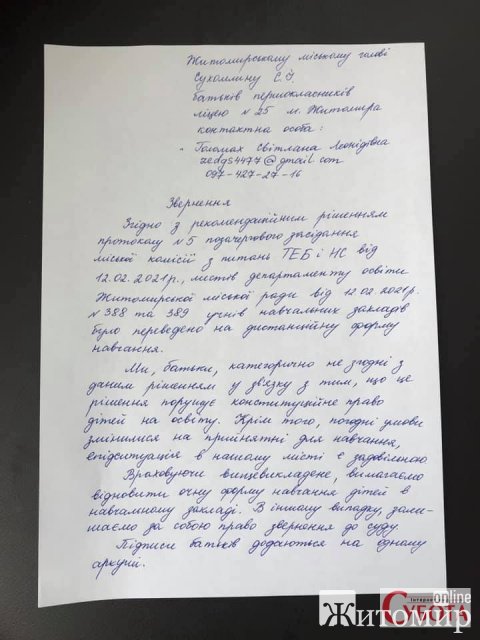 Житомирському міському голові
Сухомлину С.І.
батьків першокласників
ліцею №25 м. Житомира
контактна особа:
Голомах Світлана Леонідівна
zedgs4477@gmail.com
097-427-27-16
Звернення
Згідно з рекомендаційним рішенням
протоколу №5 позачергового засідання
міської комісії з питань ТЕБ і НС від
12.02.2021р., листів департаменту освіти
Житомирської міської ради від 12.02.2021р.
№388 та 389 учнів навчальних закладів
було переведено на дистанційну форму
навчання.
Ми, батьки, категорично не згодні з
даним рішенням у зв'язку з тим, що це
рішення порушує конституційне право
дітей на освіту. Крім того, погодні умови
змінилися на прийнятні для навчання,
епідситуація в нашому місті є задовільною
Враховуючи вищевикладене, вимагаємо
відновити очну форму навчання дітей в
навчальному закладі. В іншому випадку, зали-
шаємо за собою право звернення до суду.
Підписи батьків додаються на одному
аркуші.
online
СУБОТА
Житомир